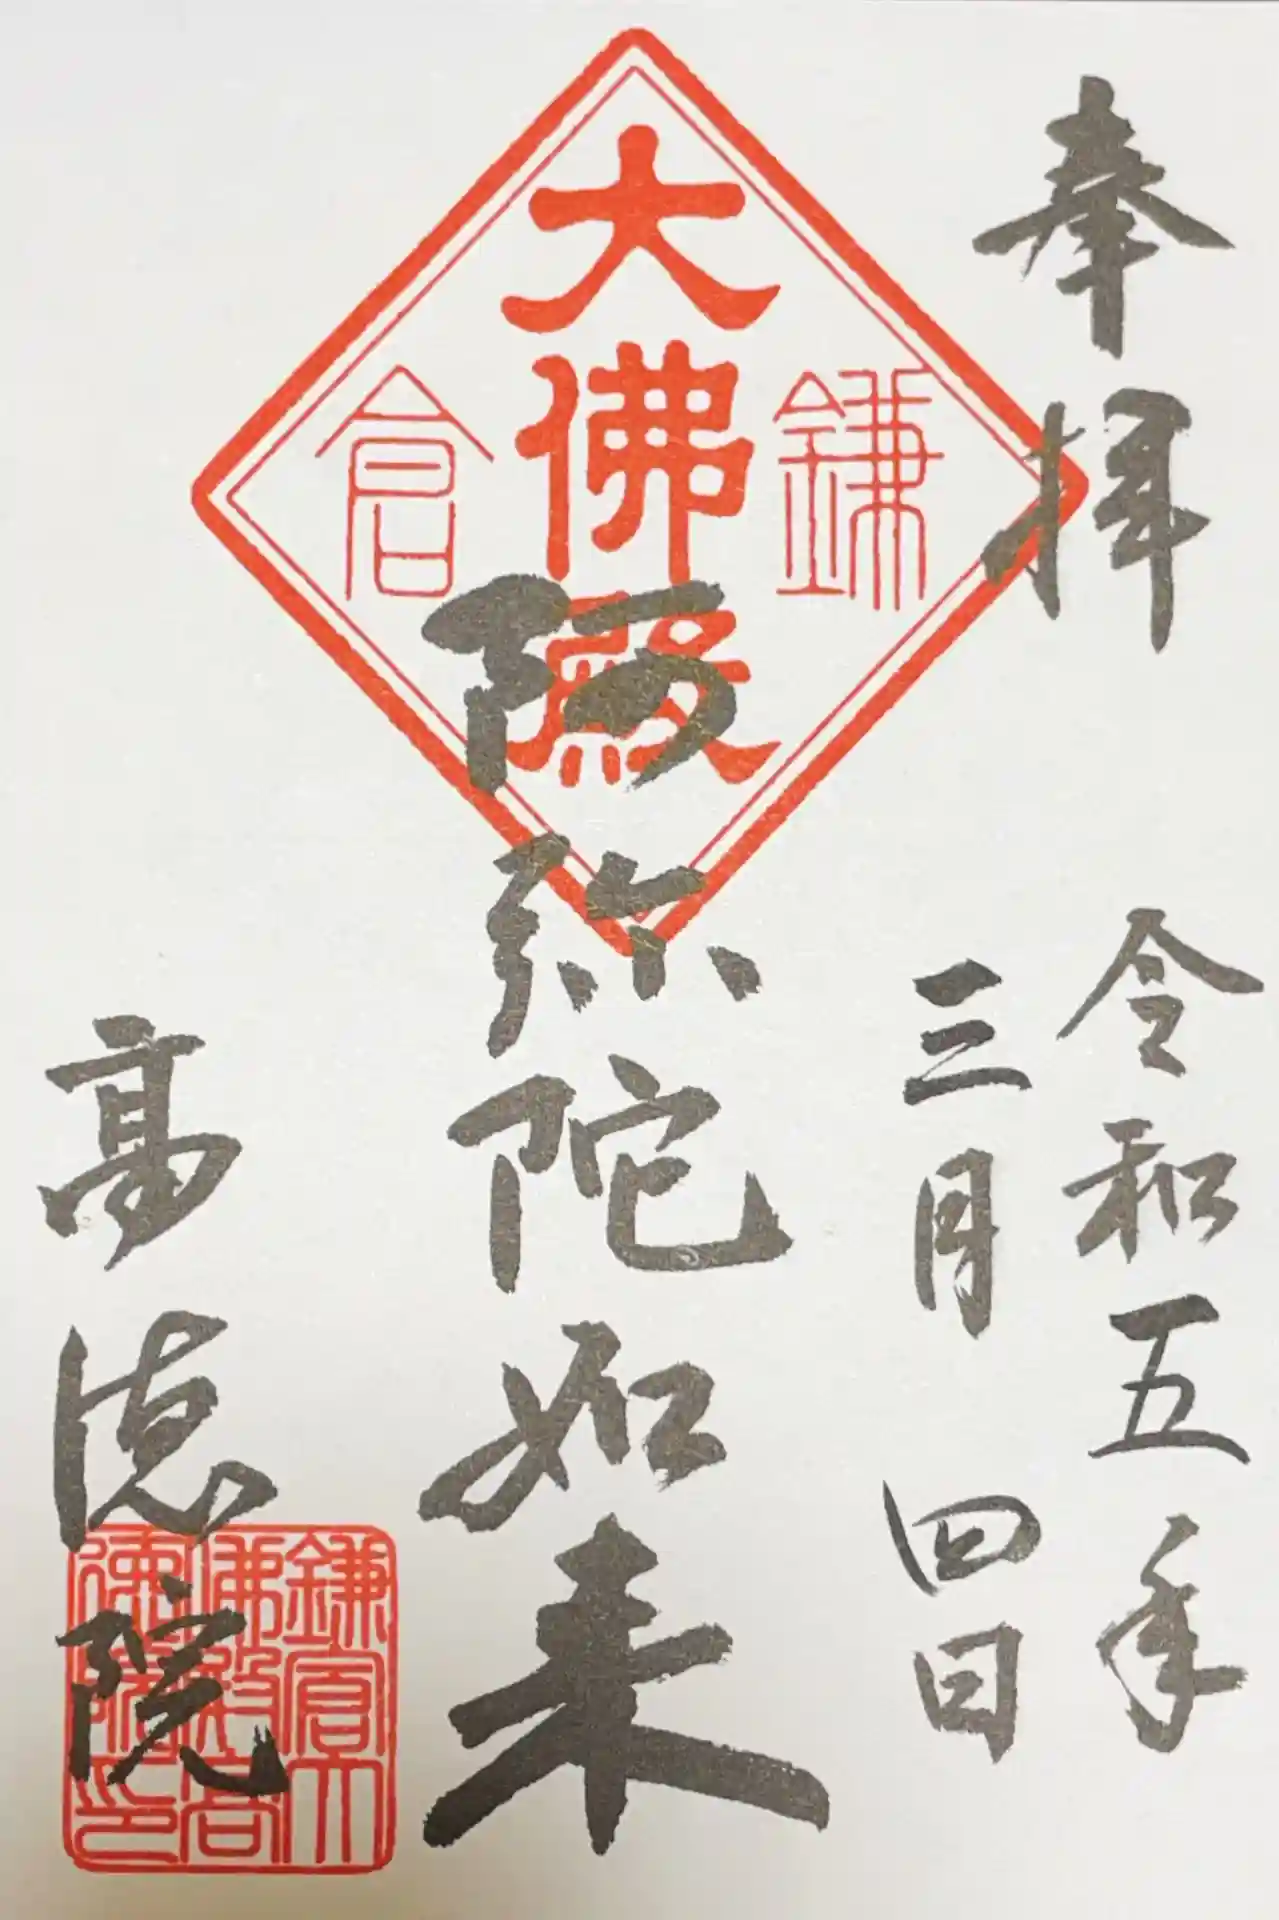 奉拝
令和五年
三月四日
鎌倉
大佛殿
阿弥陀如来
高徳院
鎌倉大
佛殿高
徳院印